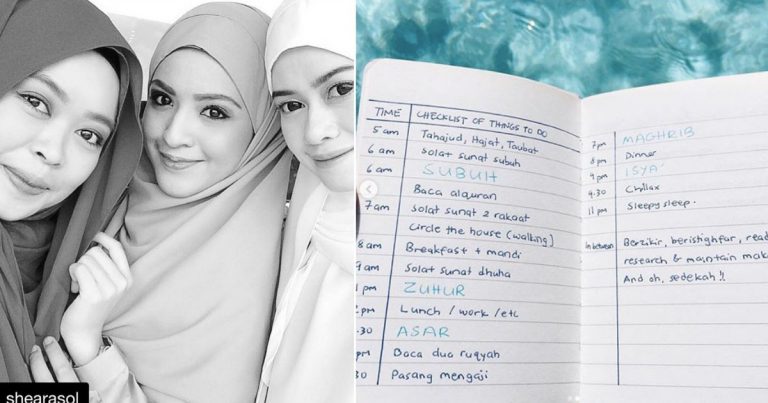 TIME CHECKLIST OF THINGS TO DO
5 am Tahajud, Hajat, Taubat
6 am Solat sunat subuh
6 am SUBUH
Baca alquran
7 am Solat sunat 2 rakaat
circle the house (walking)
8 am Breakfast + mandi
9 am Solat sunat dhuha
1 pm ZUHUR
2pm Lunch / work / etc
.30 ASAR
pm Baca dua ruqyah
30 Pasang mengaji
7 pm MAGHRIB
8 pm Dinner
9 pm ISYA'
9.30 Chillax
11 pm Sleepy sleep.
In between Berzikir, berishighfar, read
research & maintain mak
And oh, sedekah!!
shearasol